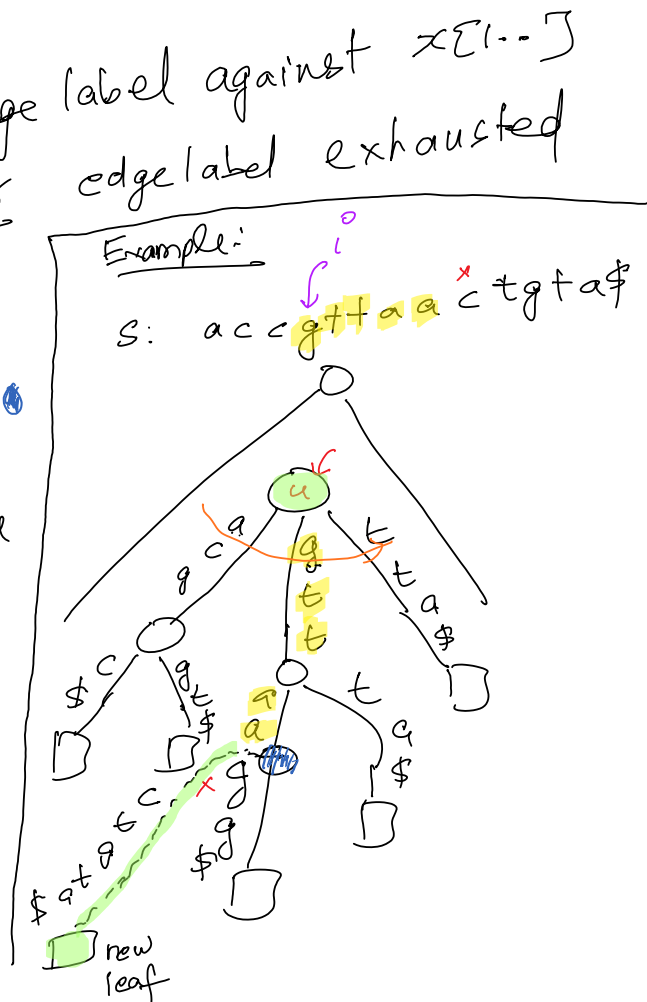 ge label against x[1..]
edgelabel exhausted
Example:
i
S: a c c g t t a a c t g t a $
x
u
a c g
g t t
t t a $
c $
g t $
a a
t a $
g g $
x
c t g t a $
new
leaf